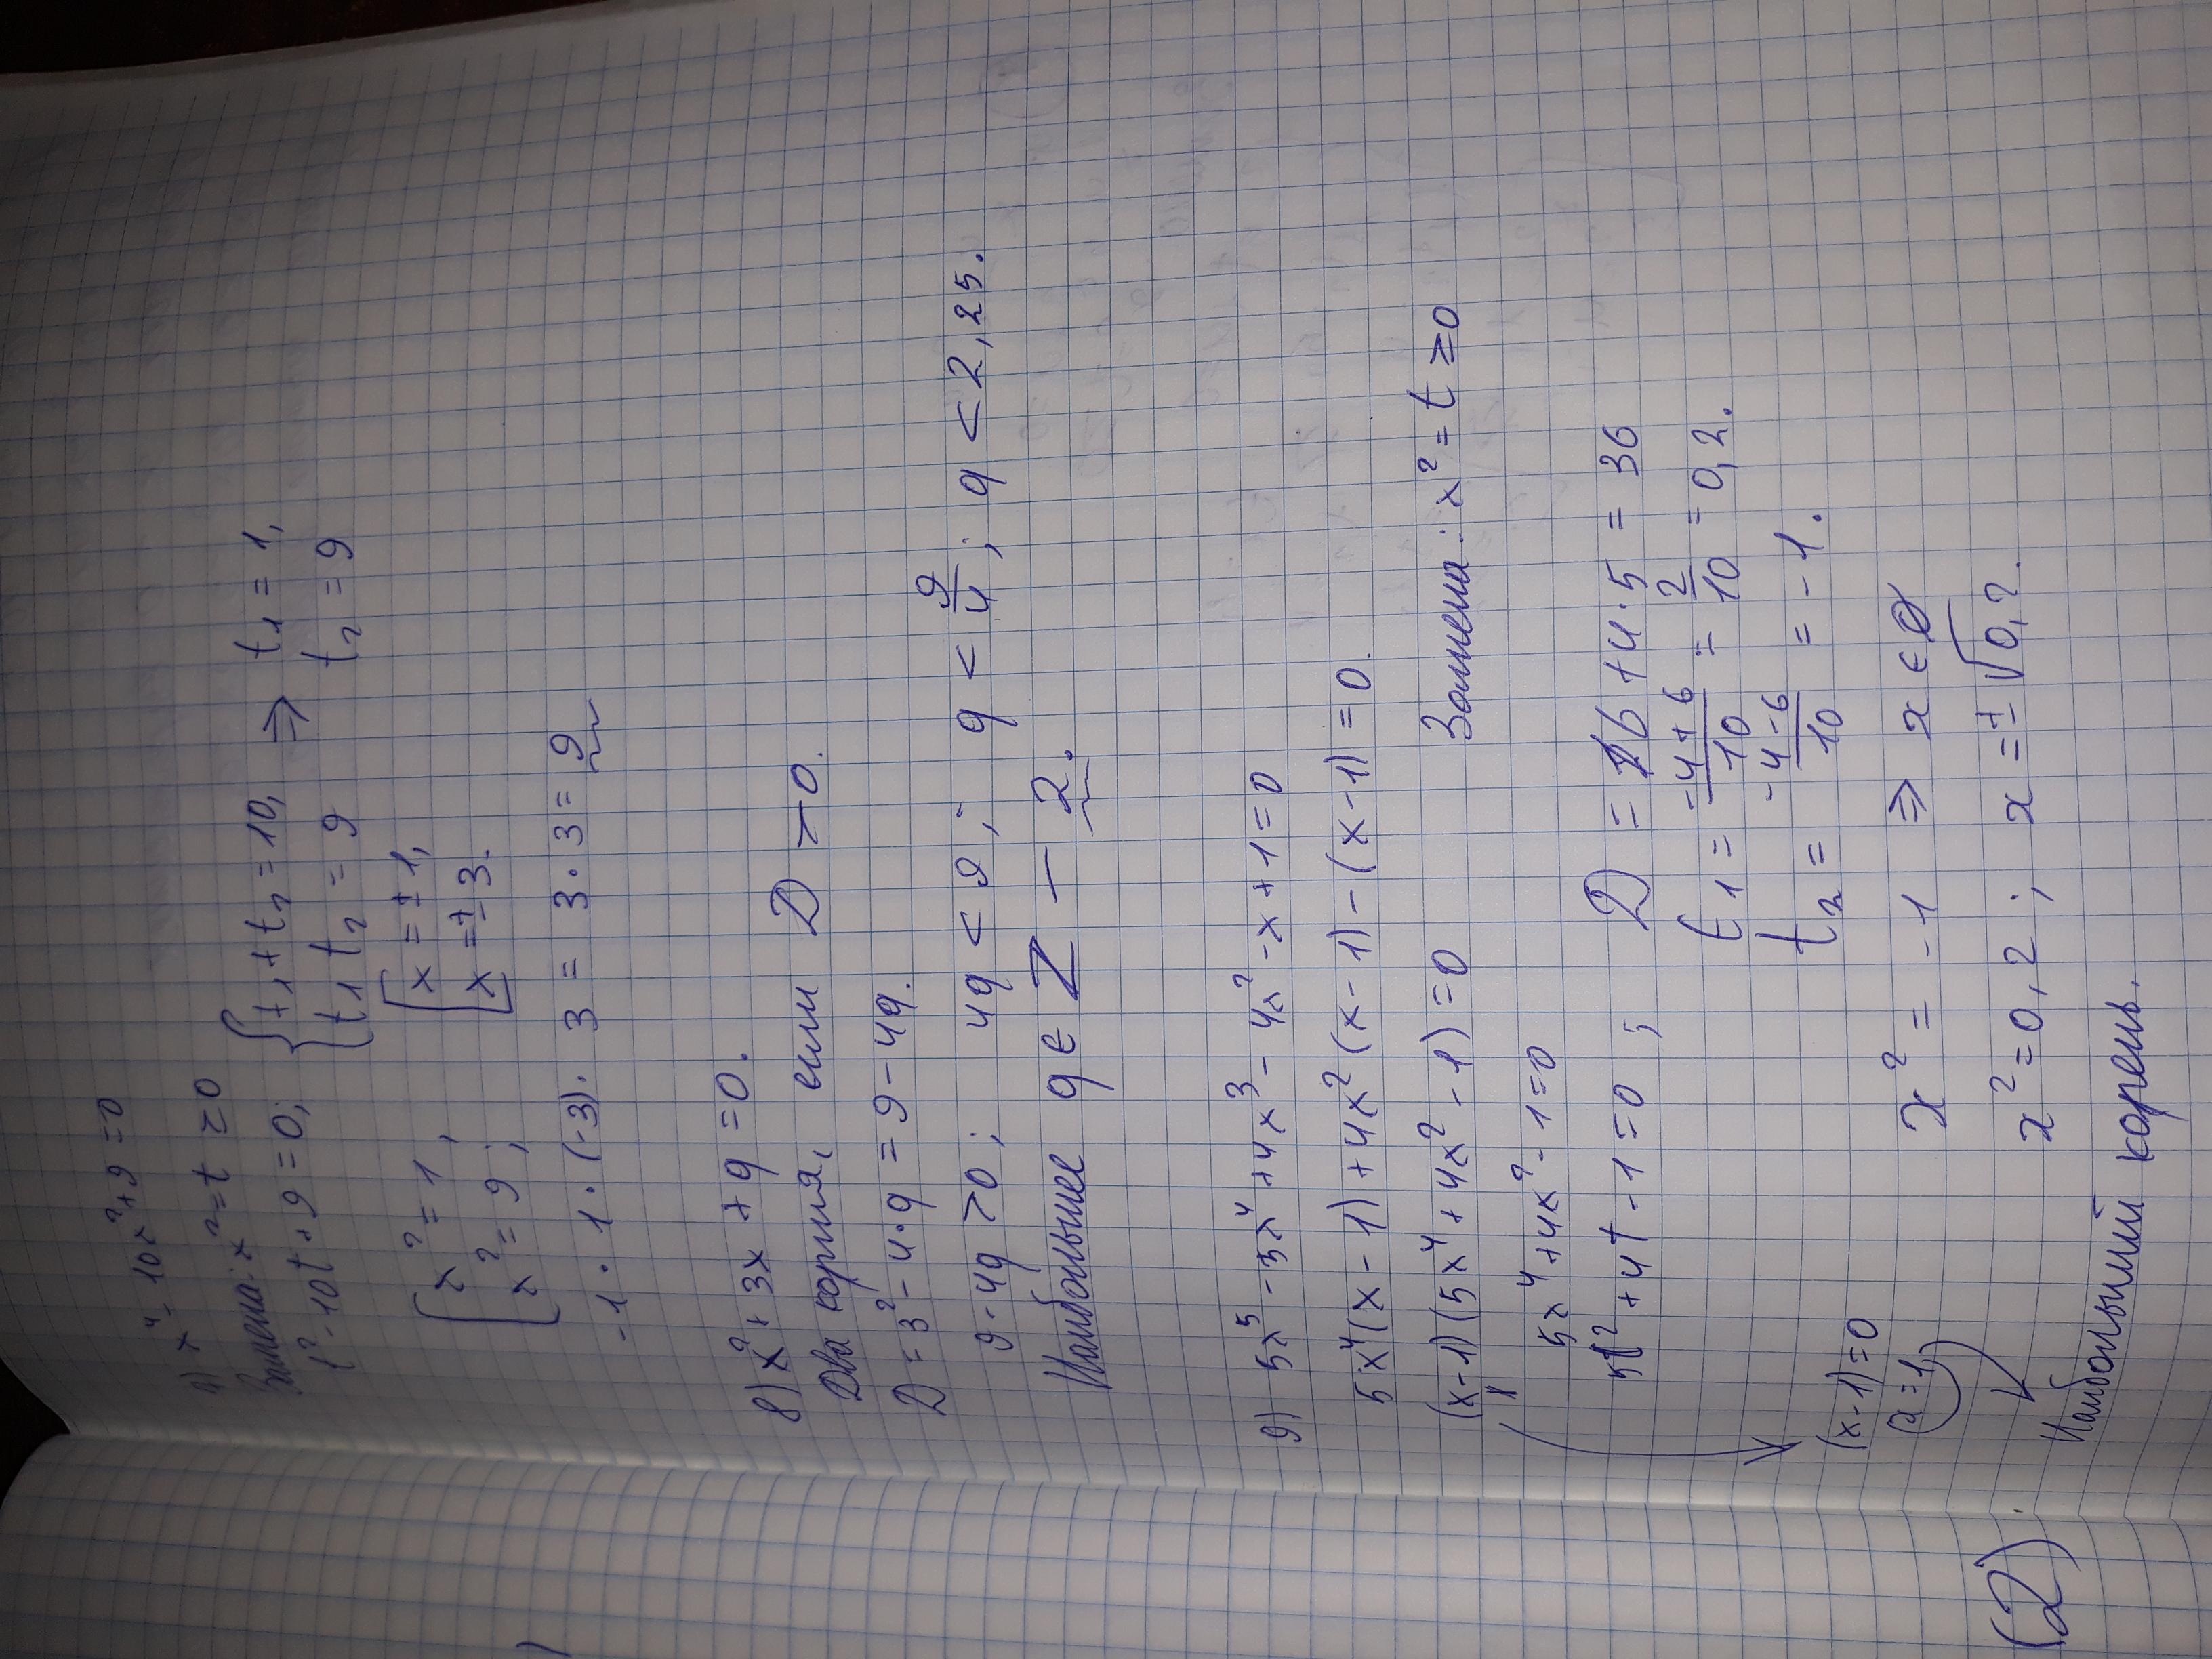 x⁴ - 10x² + 9 = 0
Замена: x² = t ≥ 0
t² - 10t + 9 = 0; { t₁ + t₂ = 10, ⇒ t₁ = 1,
t₁ t₂ = 9 t₂ = 9
[ x² = 1, [ x = ± 1,
x² = 9; x = ± 3.
-1 · 1 · (-3) · 3 = 3 · 3 = 9
8) x² + 3x + q = 0.
Два корня, если D > 0.
D = 3² - 4 · q = 9 - 4q.
9 - 4q > 0; 4q < 9; q < 9/4; q < 2,25.
Наибольшее q ∈ Z — 2.
9) 5x⁵ - 5x⁴ + 4x³ - 4x² - x + 1 = 0
5x⁴(x - 1) + 4x²(x - 1) - (x - 1) = 0.
(x - 1)(5x⁴ + 4x² - 1) = 0 Замена: x² = t ≥ 0
5x⁴ + 4x² - 1 = 0
5t² + 4t - 1 = 0; D = 16 + 4 · 5 = 36
t₁ = (-4 + 6)/10 = 2/10 = 0,2.
t₂ = (-4 - 6)/10 = -1.
(x - 1) = 0
x = 1, x² = -1 ⇒ x ∈ ∅
x² = 0,2; x = ± √0,2.
Наибольший корень.
(2).